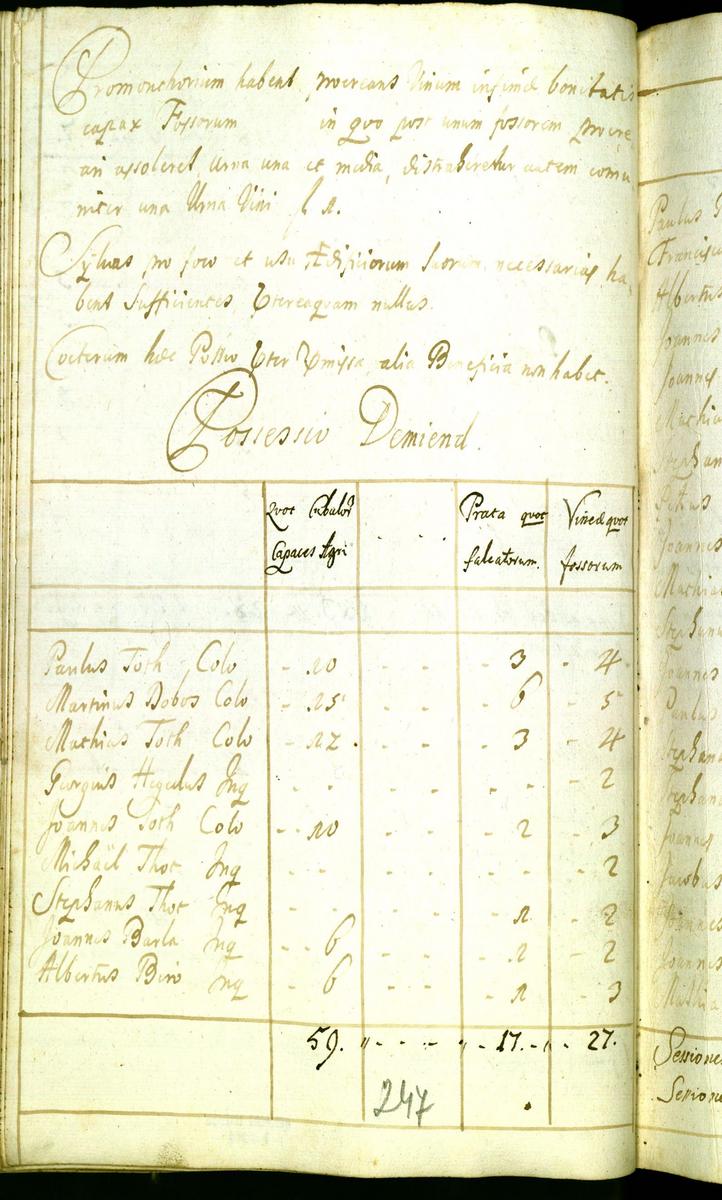 Promonthorium habent, procreans Vinum infimæ bonitatis
capax Fossorum in quo post unum fossorem procre
ari assoleret, Urna una et media, distraheretur autem comu
niter una Urna Vini f 1.
Sylvas pro foco et usu Ædificiorum suorum necessarias ha
bent sufficientes
Cæterum hæc alia Beneficia non habet.
Possessio Demiend.
Quot Cubulor Capaces Agri
Prata quot falcatorum.
Vineæ quot fossorum
Paulus Toth Colo - 10 - - - 3 - 4
Martinus Bobos Colo - 15 - - - 6 - 5
Mathias Toth Colo - 12 - - - 3 - 4
Georgius Hegedus Inq - - - - - - 2
Joannes Toth Colo - 10 - - - 2 - 3
Michaël Thot Inq - - - - - - 2
Stephanus Thot Inq - - - - - 1 - 2
Joannes Barla Inq - 6 - - - 1 - 2
Albertus Biro Inq - 6 - - - 1 - 3
59. - - - - 17. - - 27.
247
Paulus
Francisc
Albertus
Joannes
Joannes
Mathia
Stephan
Petrus
Joannes
Mathias
Stephanu
Joannes
Paulus
Stephanu
Stephanu
Joannes
Jacobus
Joannes
Joannes
Sessiones
Sessione